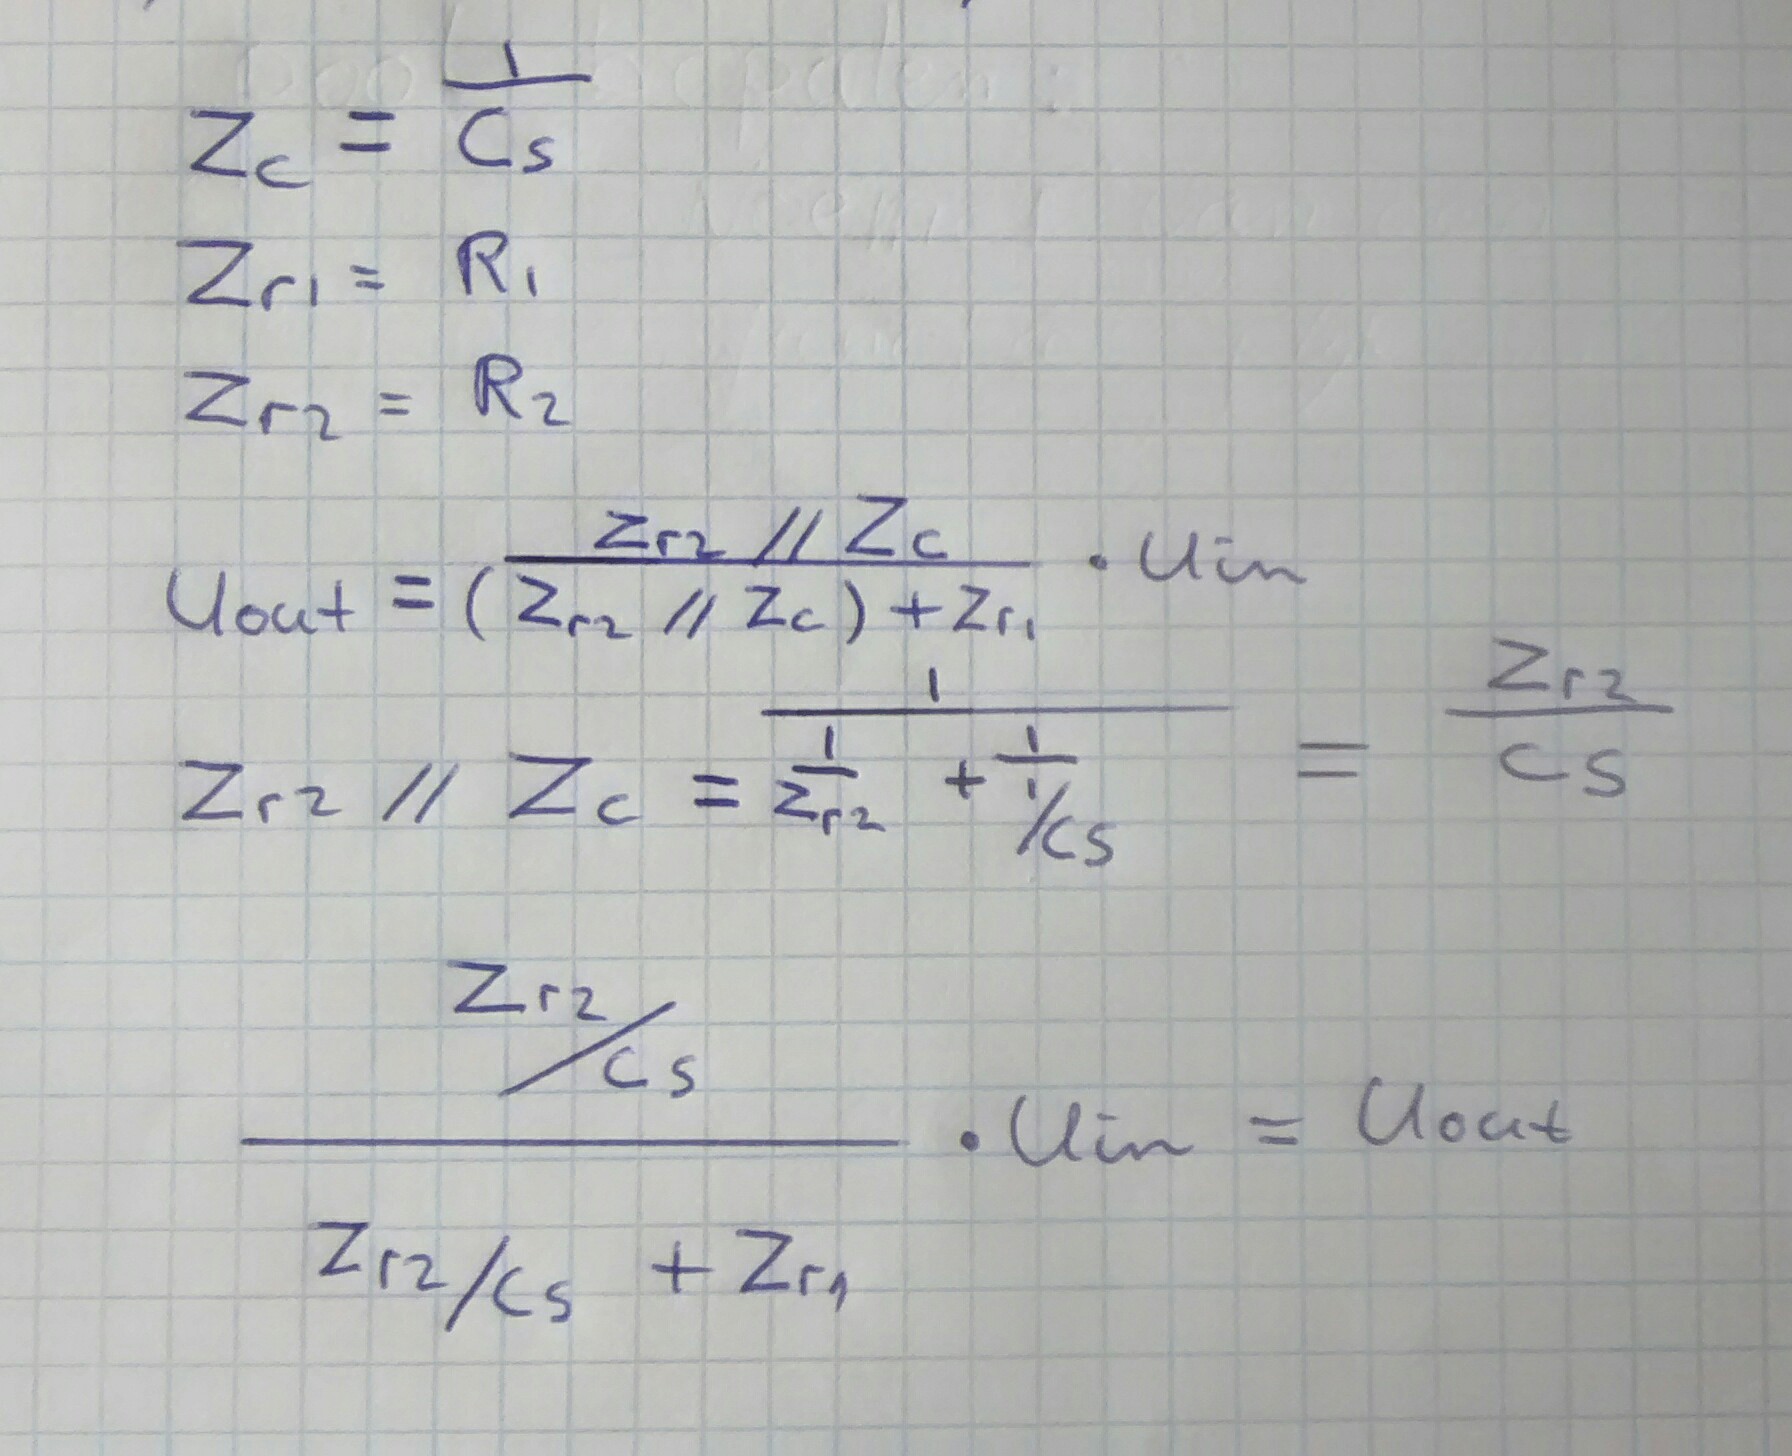 Zc = 1/Cs
Zr1 = R1
Zr2 = R2
Uout = (Zr2 // Zc)/((Zr2 // Zc) + Zr1) · Uin
Zr2 // Zc = 1/(1/Zr2 + 1/(1/Cs)) = Zr2/Cs
(Zr2/Cs)/(Zr2/Cs + Zr1) · Uin = Uout